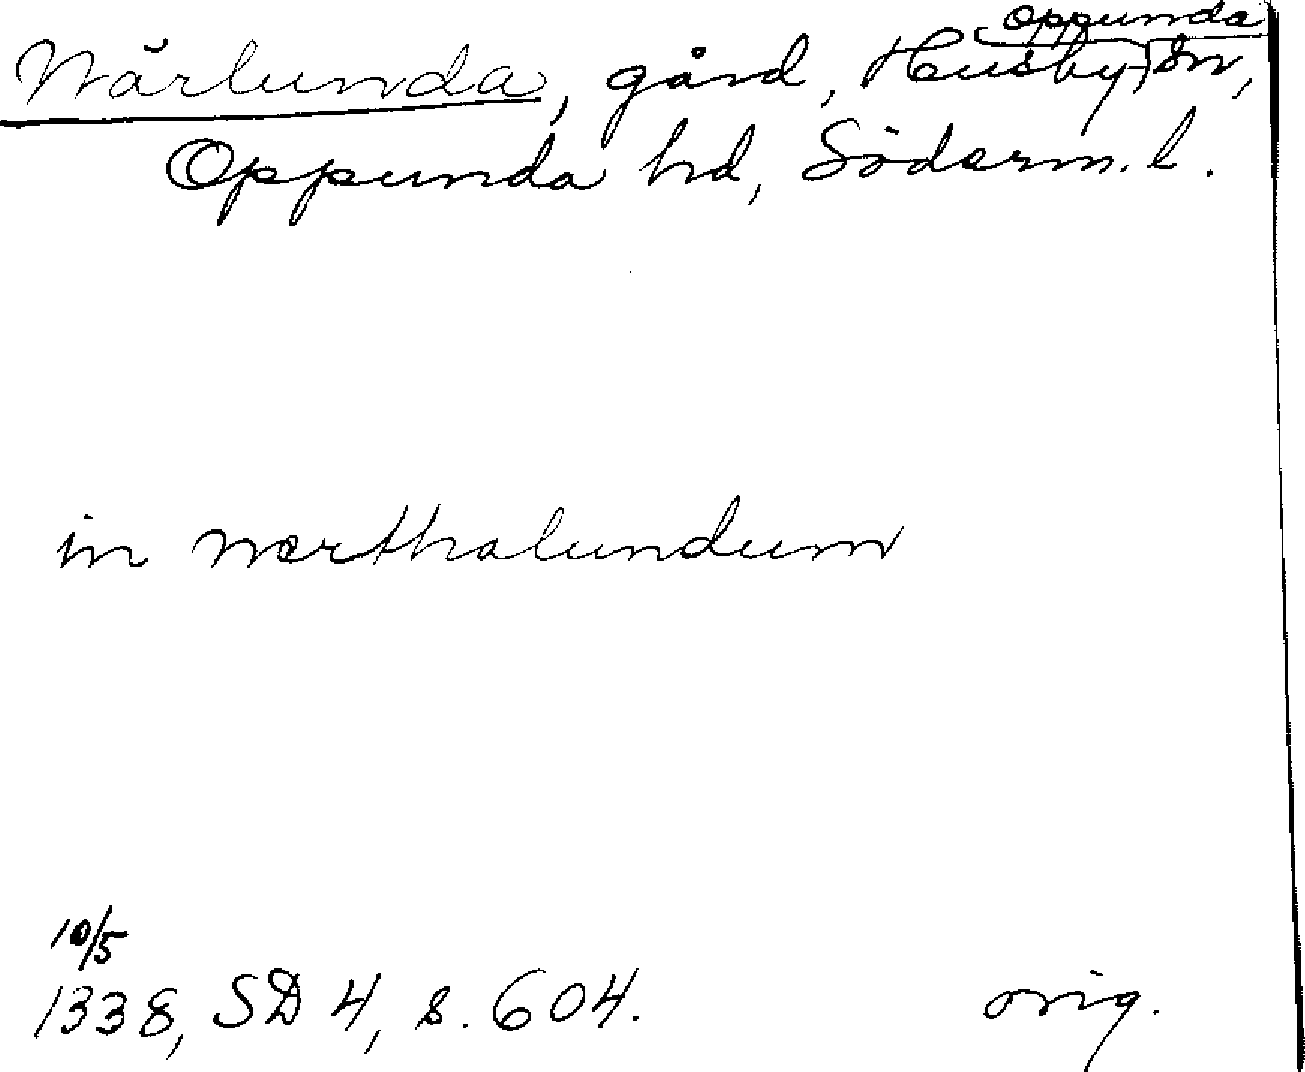 Oppunda
Wärlunda, gård, Husby sn,
Oppunda hd, Söderm. l.
in wærthalundum
10/5
1338, SD 4, s. 604. orig.